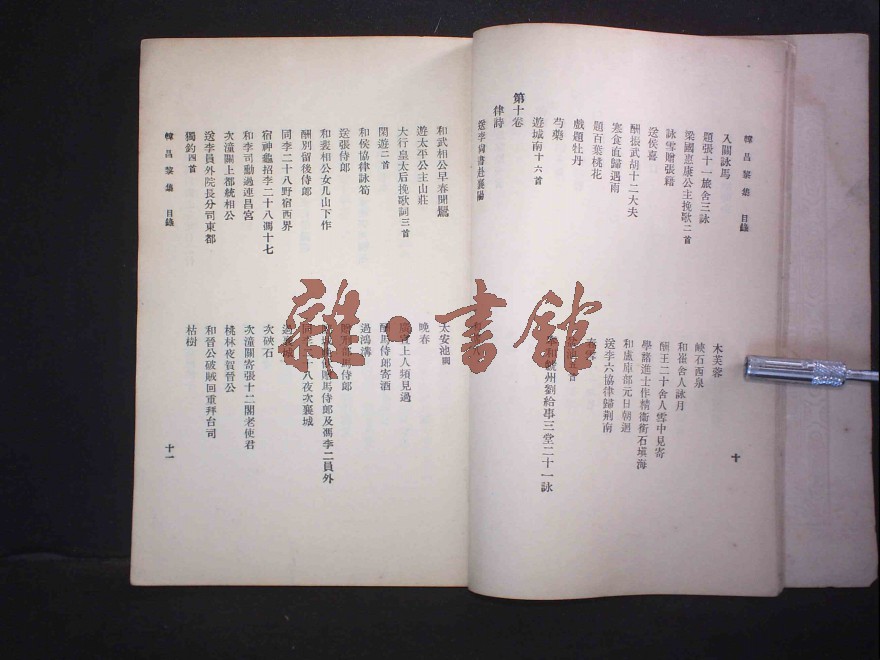 韓昌黎集 目錄 十
入關詠馬
題張十一旅舍三詠
梁國惠康公主挽歌二首
詠雪贈張籍
送侯喜
酬振武胡十二大夫
寒食直歸遇雨
題百葉桃花
戲題牡丹
芍藥
遊城南十六首
木芙蓉
峽石西泉
和崔舍人詠月
酬王二十舍人雪中見寄
學諸進士作精衛銜石填海
和盧原部元日朝迴
送李六協律歸荊南
州劉給事三堂二十一詠
第十卷
律詩
送李尚書赴襄陽
和武相公早春聞鶯
遊太平公主山莊
大行皇太后挽歌詞三首
閑遊二首
和侯協律詠筍
送張侍郎
和裴相公女几山下作
酬別留後侍郎
同李二十八野宿西界
宿神龜招李二十八馮十七
和李司勳過連昌宮
次潼關上都統相公
送李員外院長分司東都
獨釣四首
太安池闕
晚春
上人頻見過
酬馬侍郎寄酒
過鴻溝
馬侍郎
馬侍郎及馮李二員外
同李二十八夜次襄城
過襄城
次硤石
次潼關寄張十二閣老使君
桃林夜賀晉公
和晉公破賊回重拜台司
枯樹
韓昌黎集 目錄 十一
雜·書館